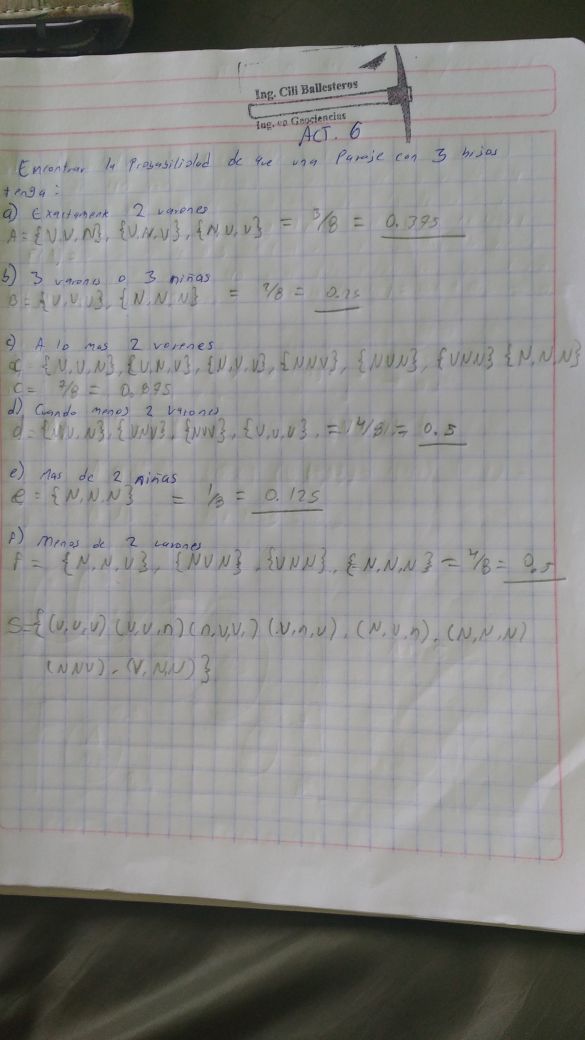 Ing. Cili Ballesteros
Ing. en Geociencias
ACT. 6
Encontrar la Probabilidad de que una Pareje con 3 hijos
tenga:
a) Exactamente 2 varones
A={V,V,N}, {V,N,V}, {N,V,V} = 3/8 = 0.375
b) 3 varones o 3 niñas
B={V,V,V}, {N,N,N} = 2/8 = 0.25
c) A lo mas 2 varones
C= {N,V,N}, {V,N,V}, {N,V,V}, {NNV}, {NVN}, {VNN} {N,N,N}
C= 7/8 = 0.875
d) Cuando menos 2 varones
d={V,V,N}, {VNV}, {NVV}, {V,V,V}, = 4/8 = 0.5
e) Mas de 2 niñas
e = {N,N,N} = 1/8 = 0.125
f) Menos de 2 varones
f= {N,N,V}, {NVN}, {VNN}, {N,N,N} = 4/8 = 0.5
S={(V,V,V) (V,V,n) (n,V,V,) (V,n,V), (N,V,n), (N,N,N)
(NNV), (V,N,N)}